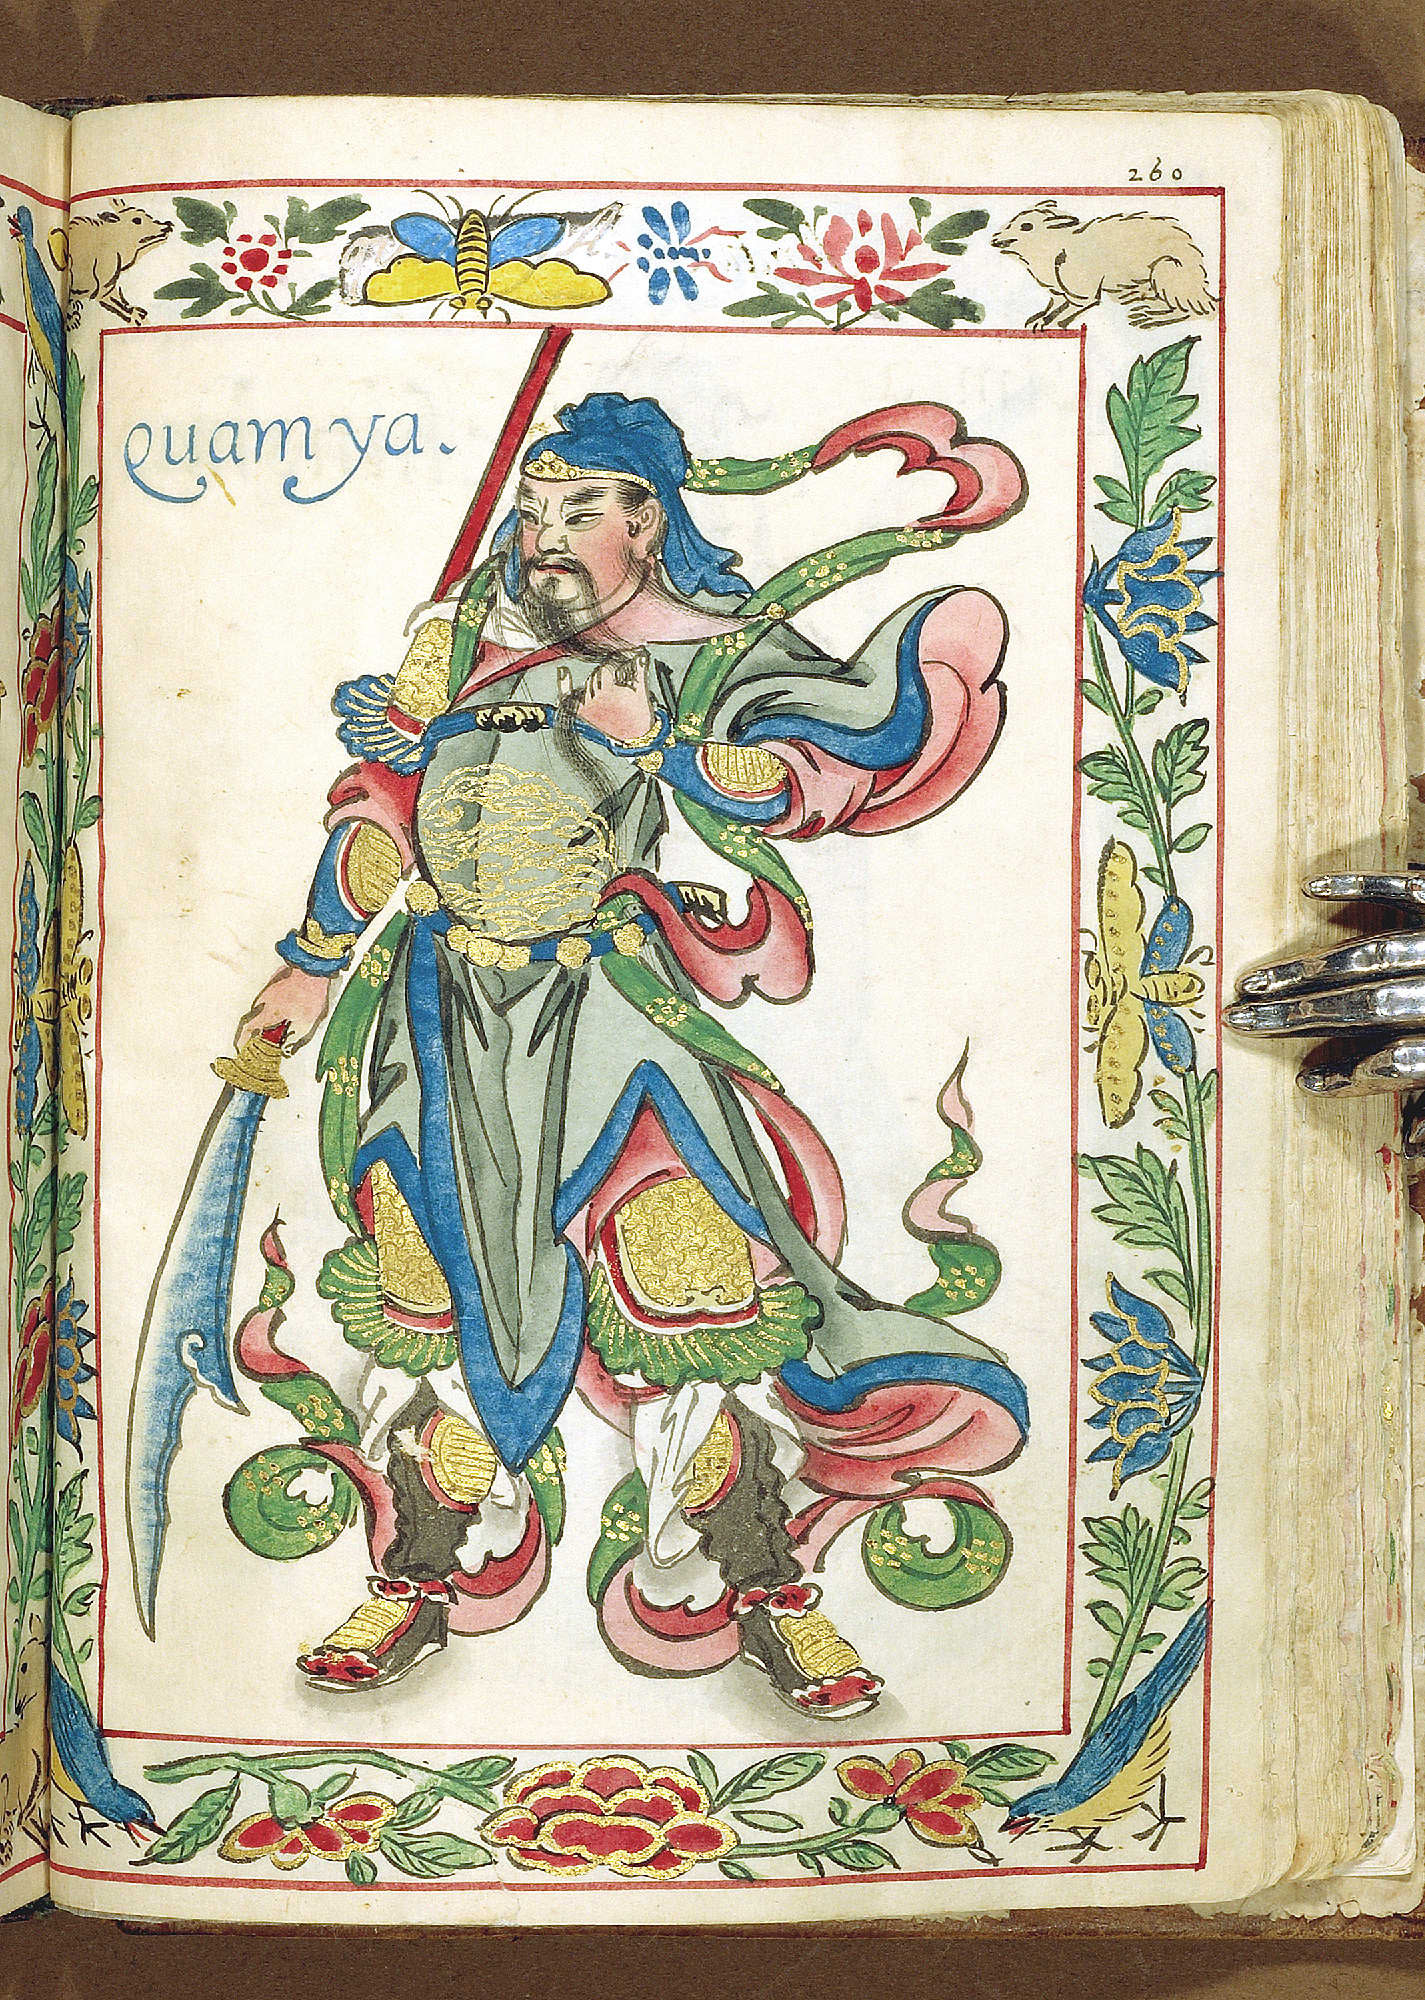 260
quamya.